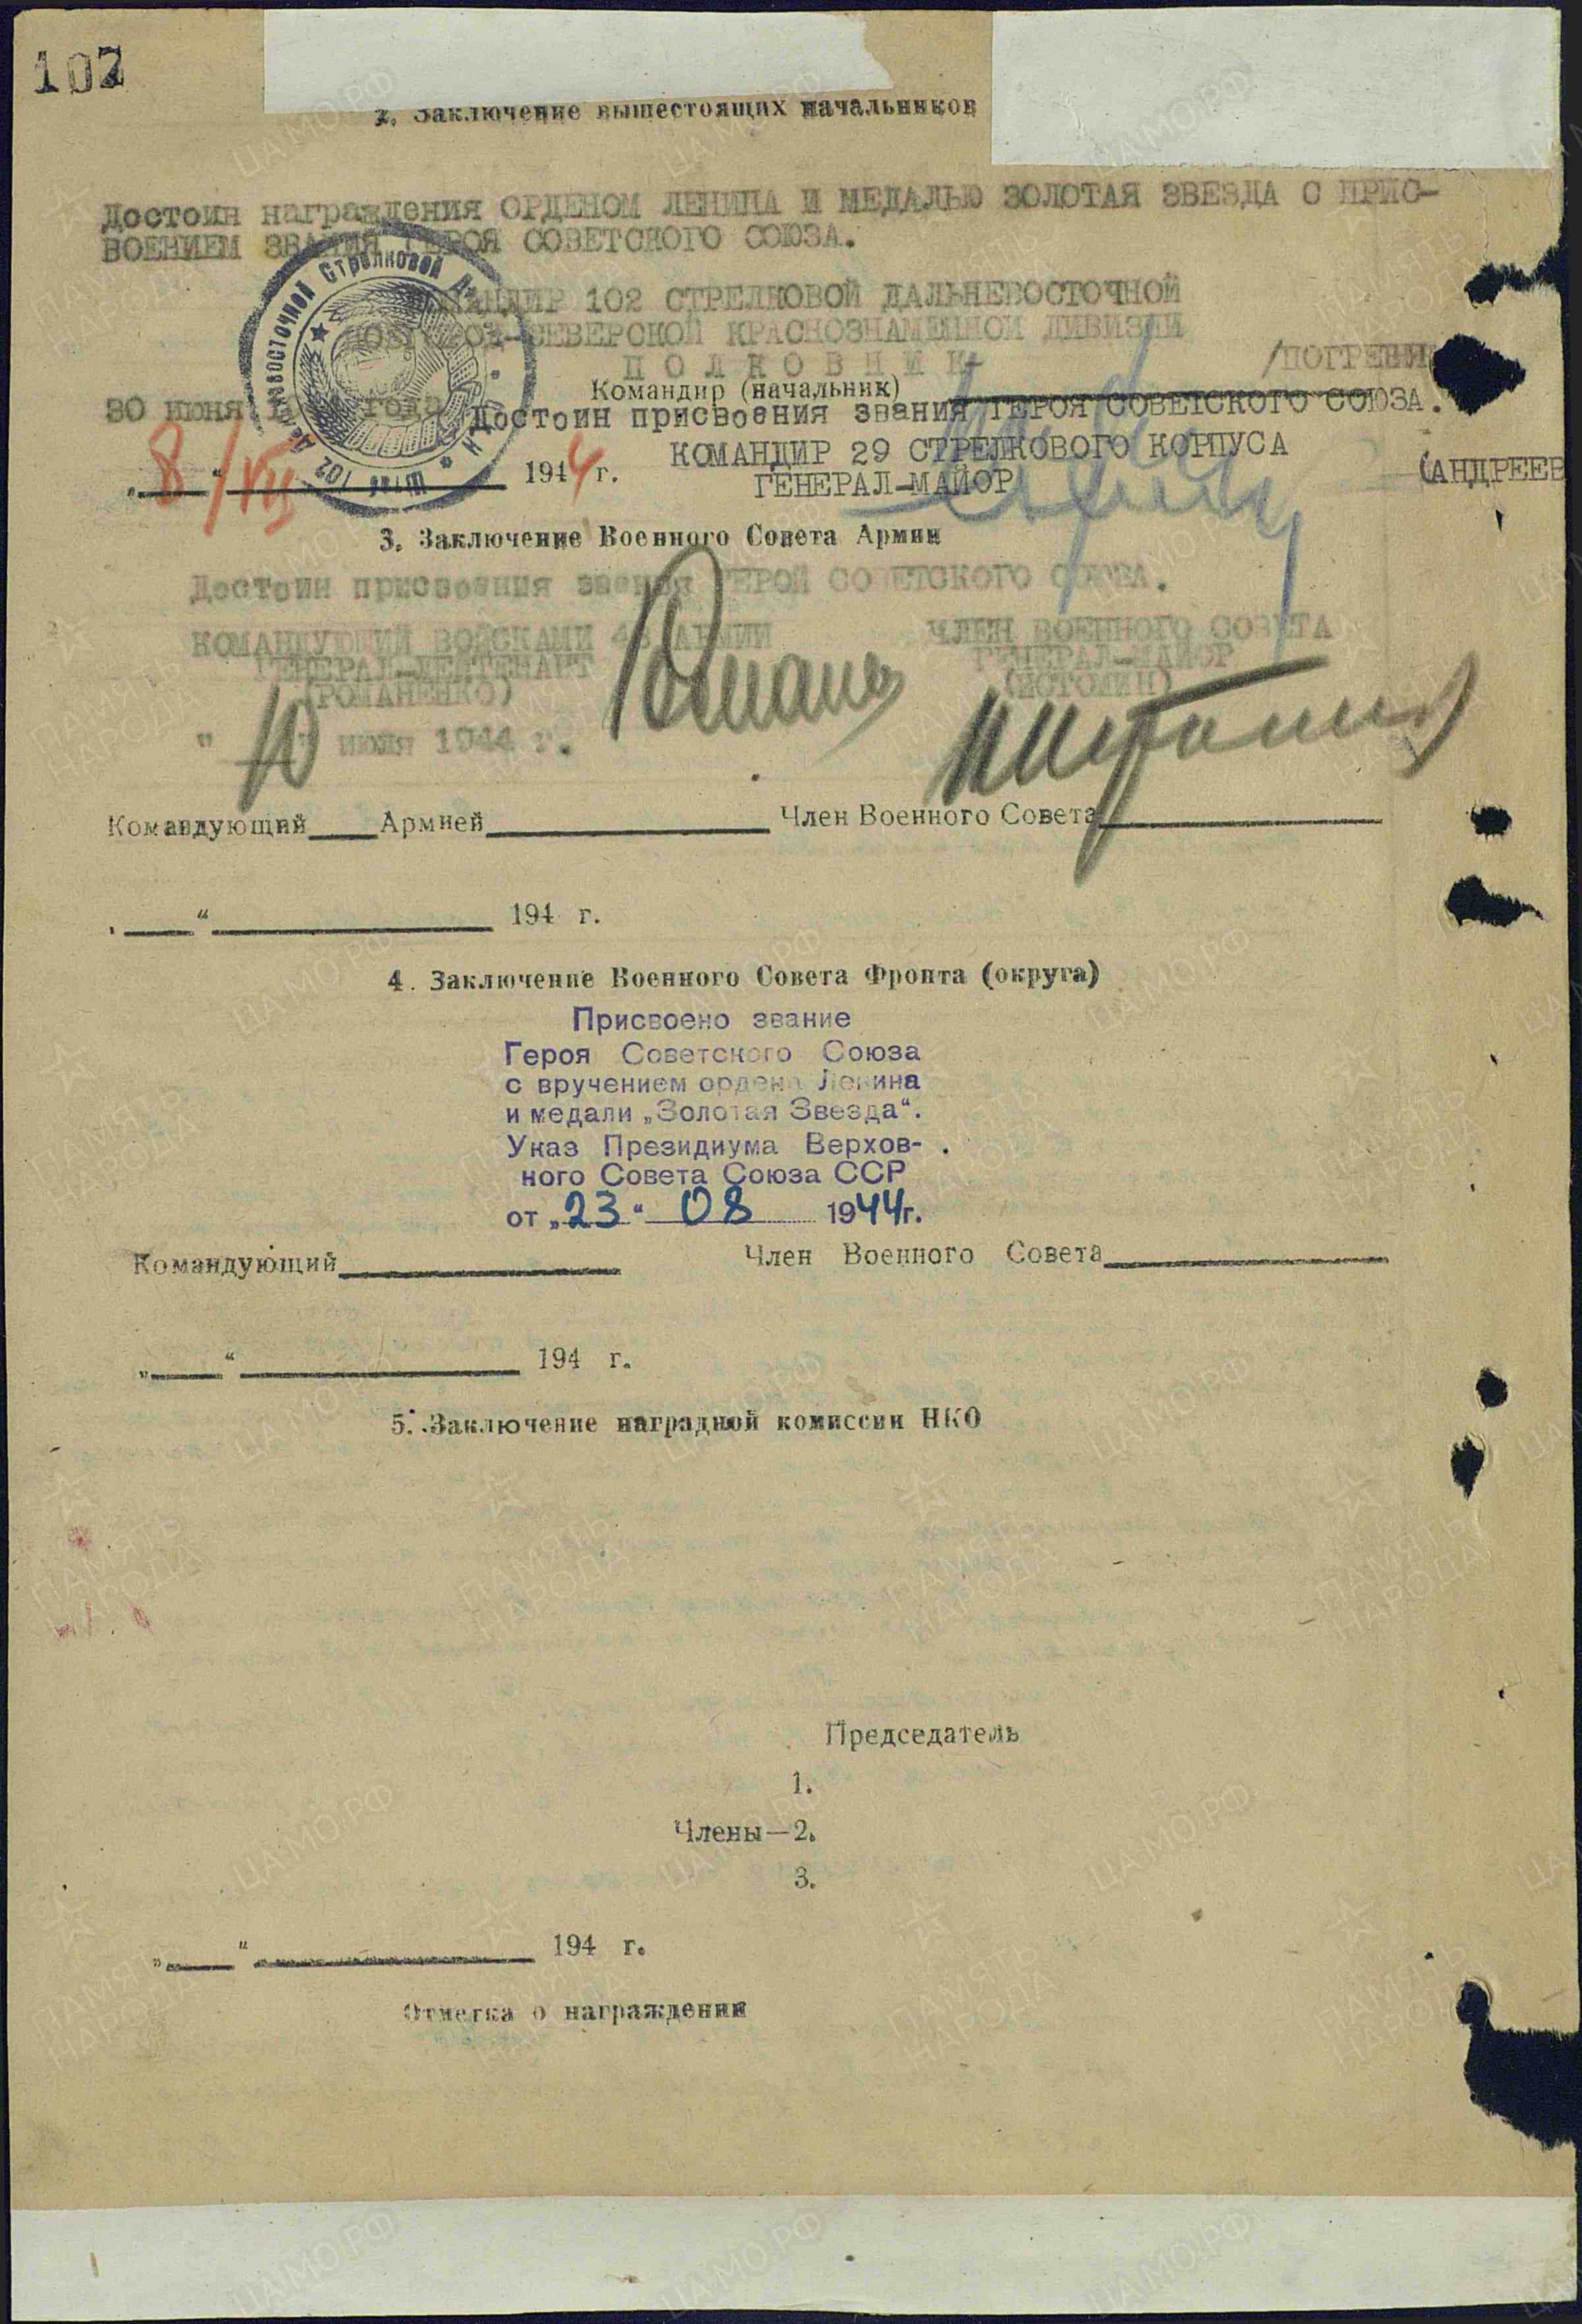 102
2. Заключение вышестоящих начальников
Достоин награждения ОРДЕНОМ ЛЕНИНА И МЕДАЛЬЮ ЗОЛОТАЯ ЗВЕЗДА С ПРИС-
ВОЕНИЕМ ЗВАНИЯ ГЕРОЯ СОВЕТСКОГО СОЮЗА.
КОМАНДИР 102 СТРЕЛКОВОЙ ДАЛЬНЕВОСТОЧНОЙ
НОВГОРОД-СЕВЕРСКОЙ КРАСНОЗНАМЕННОЙ ДИВИЗИИ
ПОЛКОВНИК /ПОГРЕБН
Командир (начальник)
30 июня года Достоин присвоения звания ГЕРОЯ СОВЕТСКОГО СОЮЗА.
КОМАНДИР 29 СТРЕЛКОВОГО КОРПУСА
„8“ VII 1944 г. ГЕНЕРАЛ-МАЙОР (АНДРЕЕВ
Штаб 102 Дальневосточной Стрелковой
3. Заключение Военного Совета Армии
Достоин присвоения звания ГЕРОЙ СОВЕТСКОГО СОЮЗА.
КОМАНДУЮЩИЙ ВОЙСКАМИ 48 АРМИИ ЧЛЕН ВОЕННОГО СОВЕТА
ГЕНЕРАЛ-ЛЕЙТЕНАНТ ГЕНЕРАЛ-МАЙОР
(РОМАНЕНКО) (ИСТОМИН)
"10" июля 1944 г.
Командующий Армией Член Военного Совета
„ “ 194 г.
4. Заключение Военного Совета Фронта (округа)
Присвоено звание
Героя Советского Союза
с вручением ордена Ленина
и медали „Золотая Звезда“.
Указ Президиума Верхов-
ного Совета Союза ССР
от „23“ 08 1944г.
Командующий Член Военного Совета
„ “ 194 г.
5. Заключение наградной комиссии НКО
Председатель
1.
Члены—2.
3.
„ “ 194 г.
Отметка о награждении
ЦАМО.РФ
ПАМЯТЬ
НАРОДА